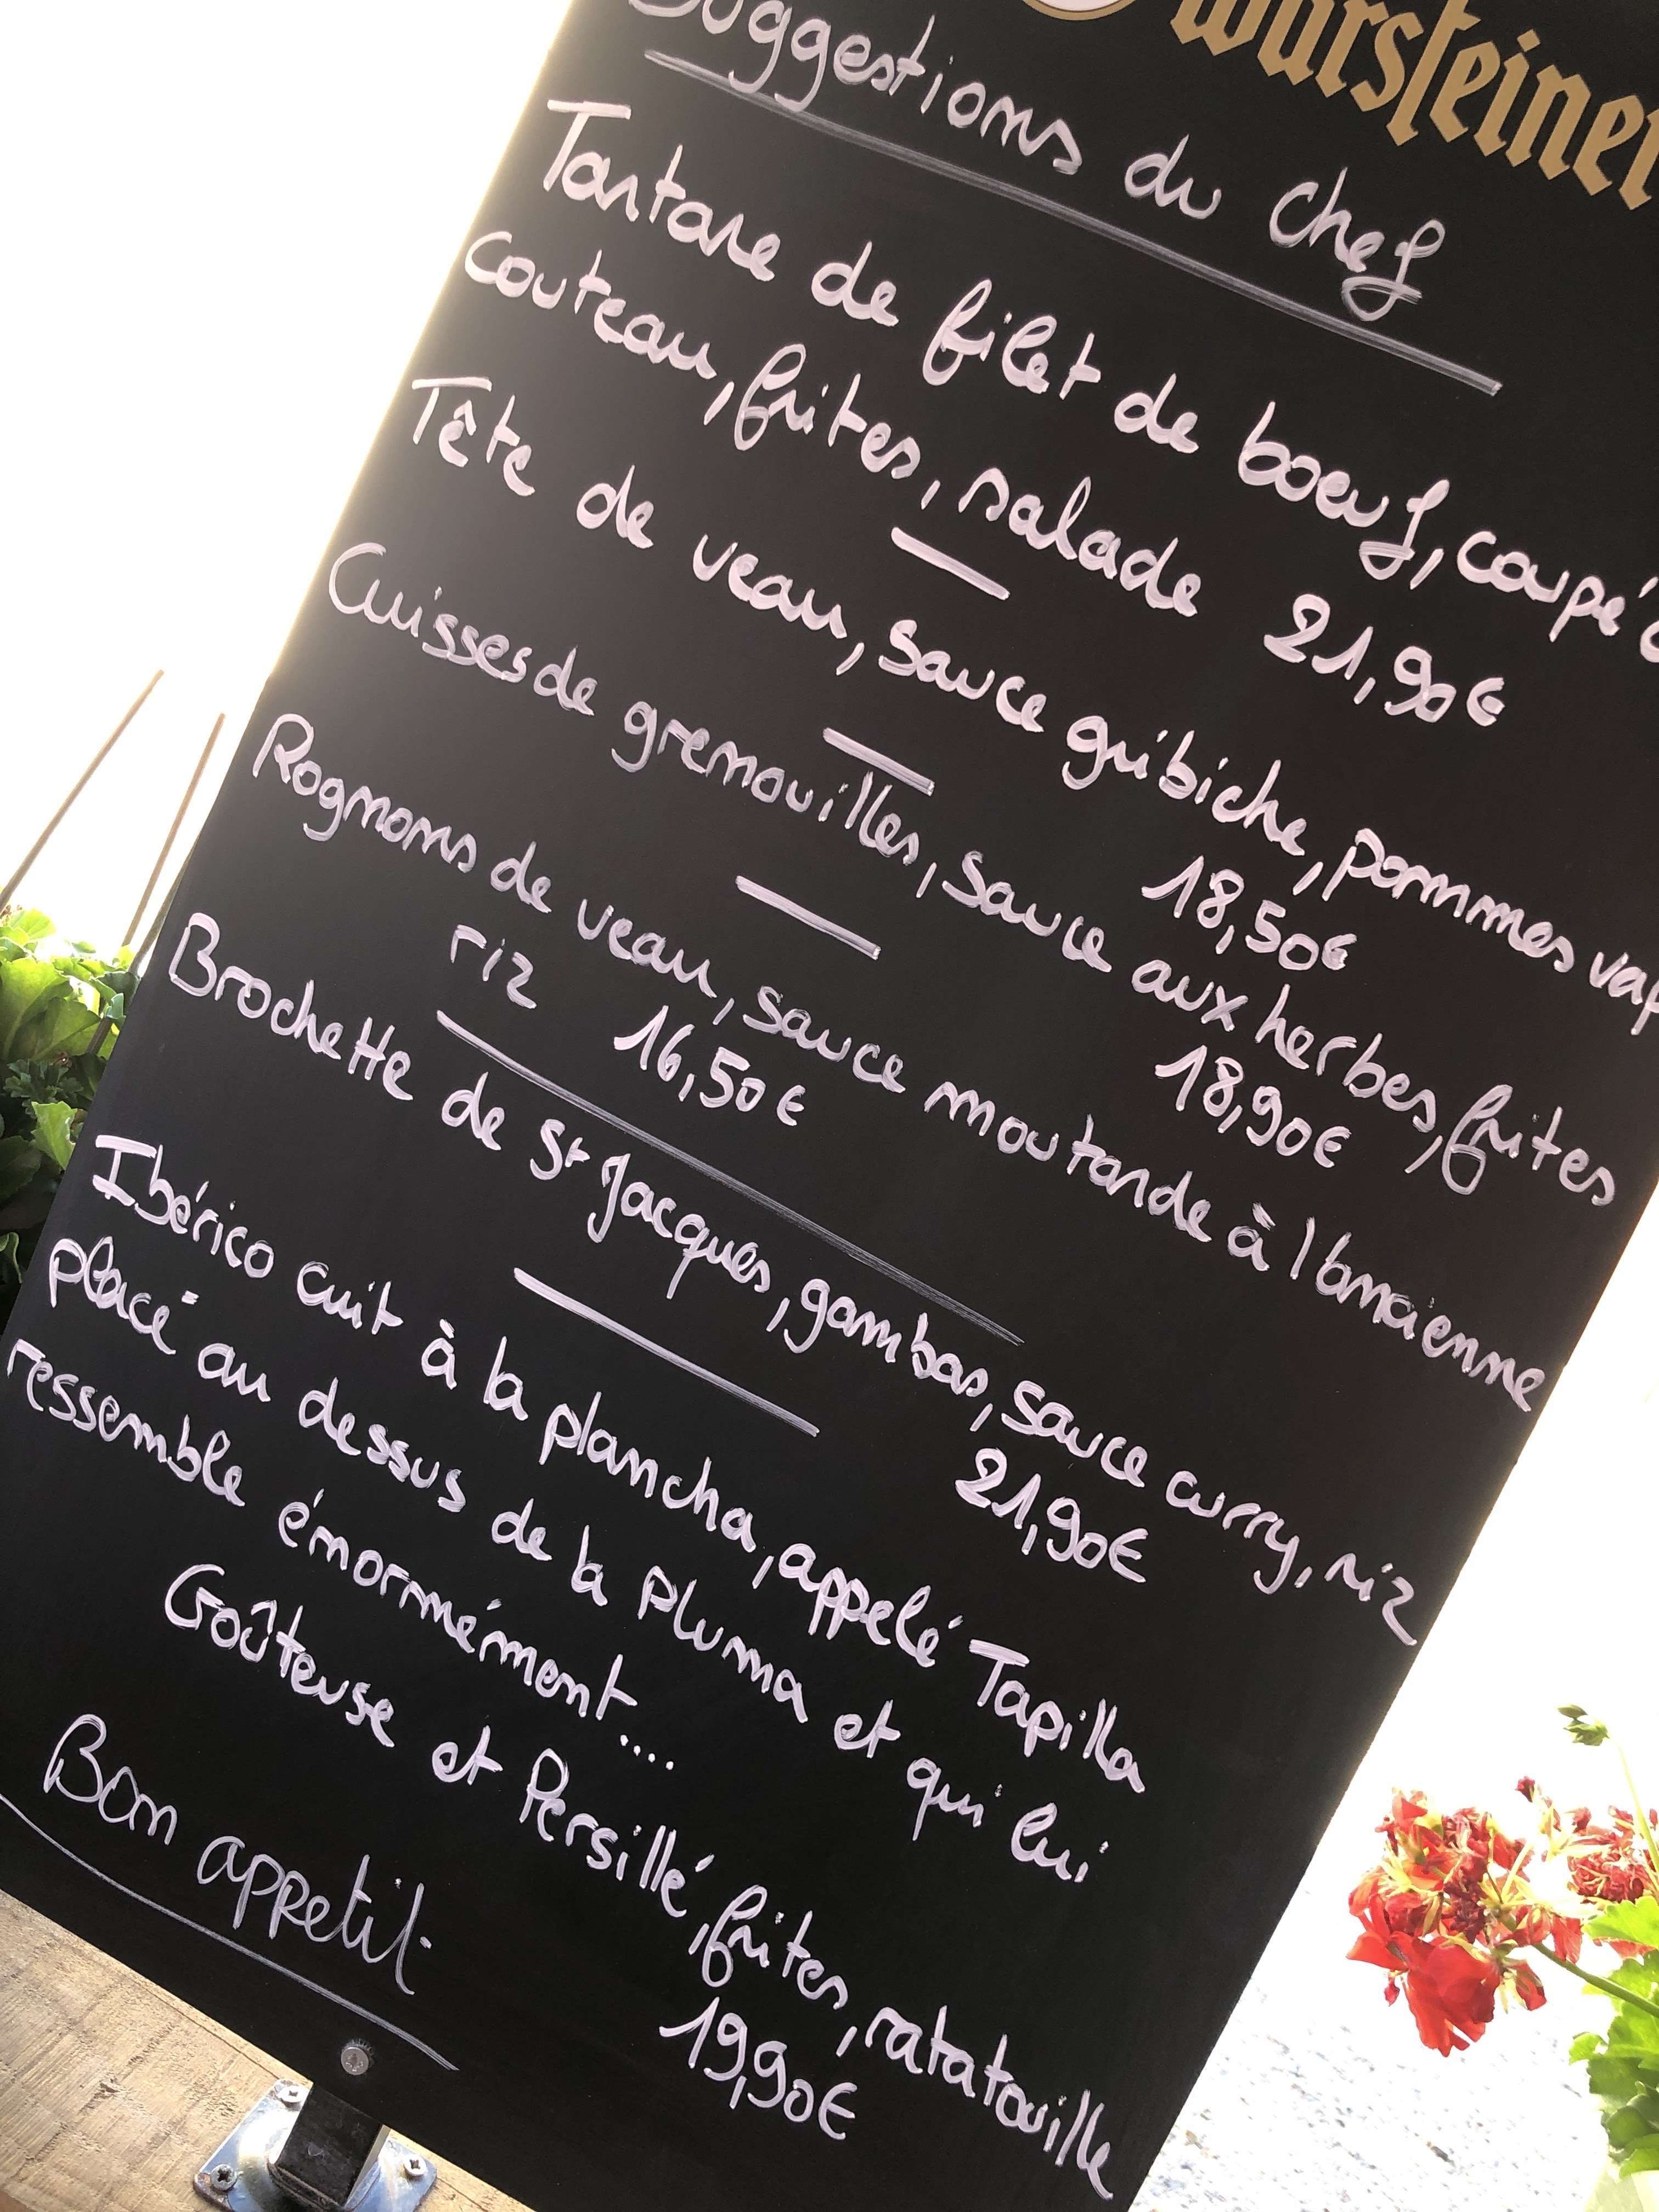 Warsteiner
Suggestions du chef
Tartare de filet de boeuf, coupé
couteau, frites, salade 21,90€
Tête de veau, sauce gribiche, pommes vap
18,50€
Cuisses de grenouilles, sauce aux herbes, frites
18,90€
Rognons de veau, sauce moutarde à l'ancienne
riz 16,50€
Brochette de St Jacques, gambas, sauce curry, riz
21,90€
Ibérico cuit à la plancha, appelé Tapilla
placé au dessus de la Pluma et qui lui
ressemble énormément....
Goûteuse et Persillé, frites, ratatouille
19,90€
Bon appetit